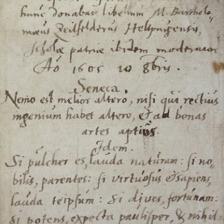 hunc donabat libellum M. Barthola
mæus Reilstetters Helpingensis,
scholæ patriæ ibidem moderator
Aō 1605 20 8bris.
Seneca.
Nemo est melior altero, nisi qui rectius
ingenium habet altero, et ad bonas
artes aptius.
Idem.
Si pulcher es, lauda naturam: si no,
bilis, parentes: si virtuosus et sapiens,
lauda teipsum: Si dives, fortunam:
si potens, expecta paulisper, et nihil